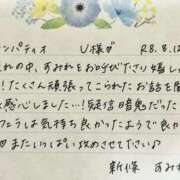 ンパティオ U様♂ R8.8.12
れの中、すみれをお呼びたさり嬉し
!たくさん頑張ってこられたお話を聞
感心しました…!疑信暗鬼だった
フェラは気持ち良かったようで良か
回またいっぱい攻めさせて下さい♪
新人様 すみれ